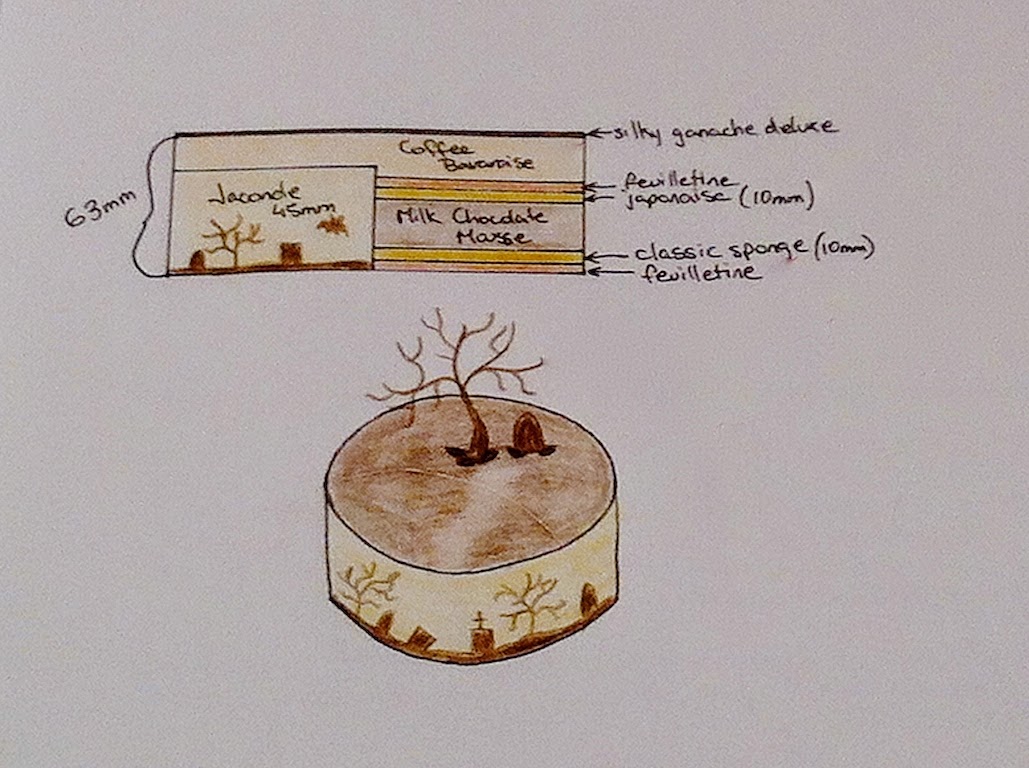 silky ganache deluxe
Coffee
Bavaroise
feuilletine
japonaise (10mm)
Joconde
45mm
63mm
Milk Chocolate
Mousse
classic sponge (10mm)
feuilletine